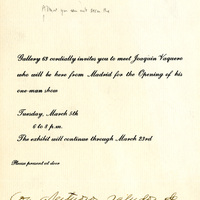 Gallery 63 cordially invites you to meet Joaquin Vaquero
who will be here from Madrid for the Opening of his
one-man show
Tuesday, March 5th
6 to 8 p.m.
The exhibit will continue through March 23rd
Please present at door